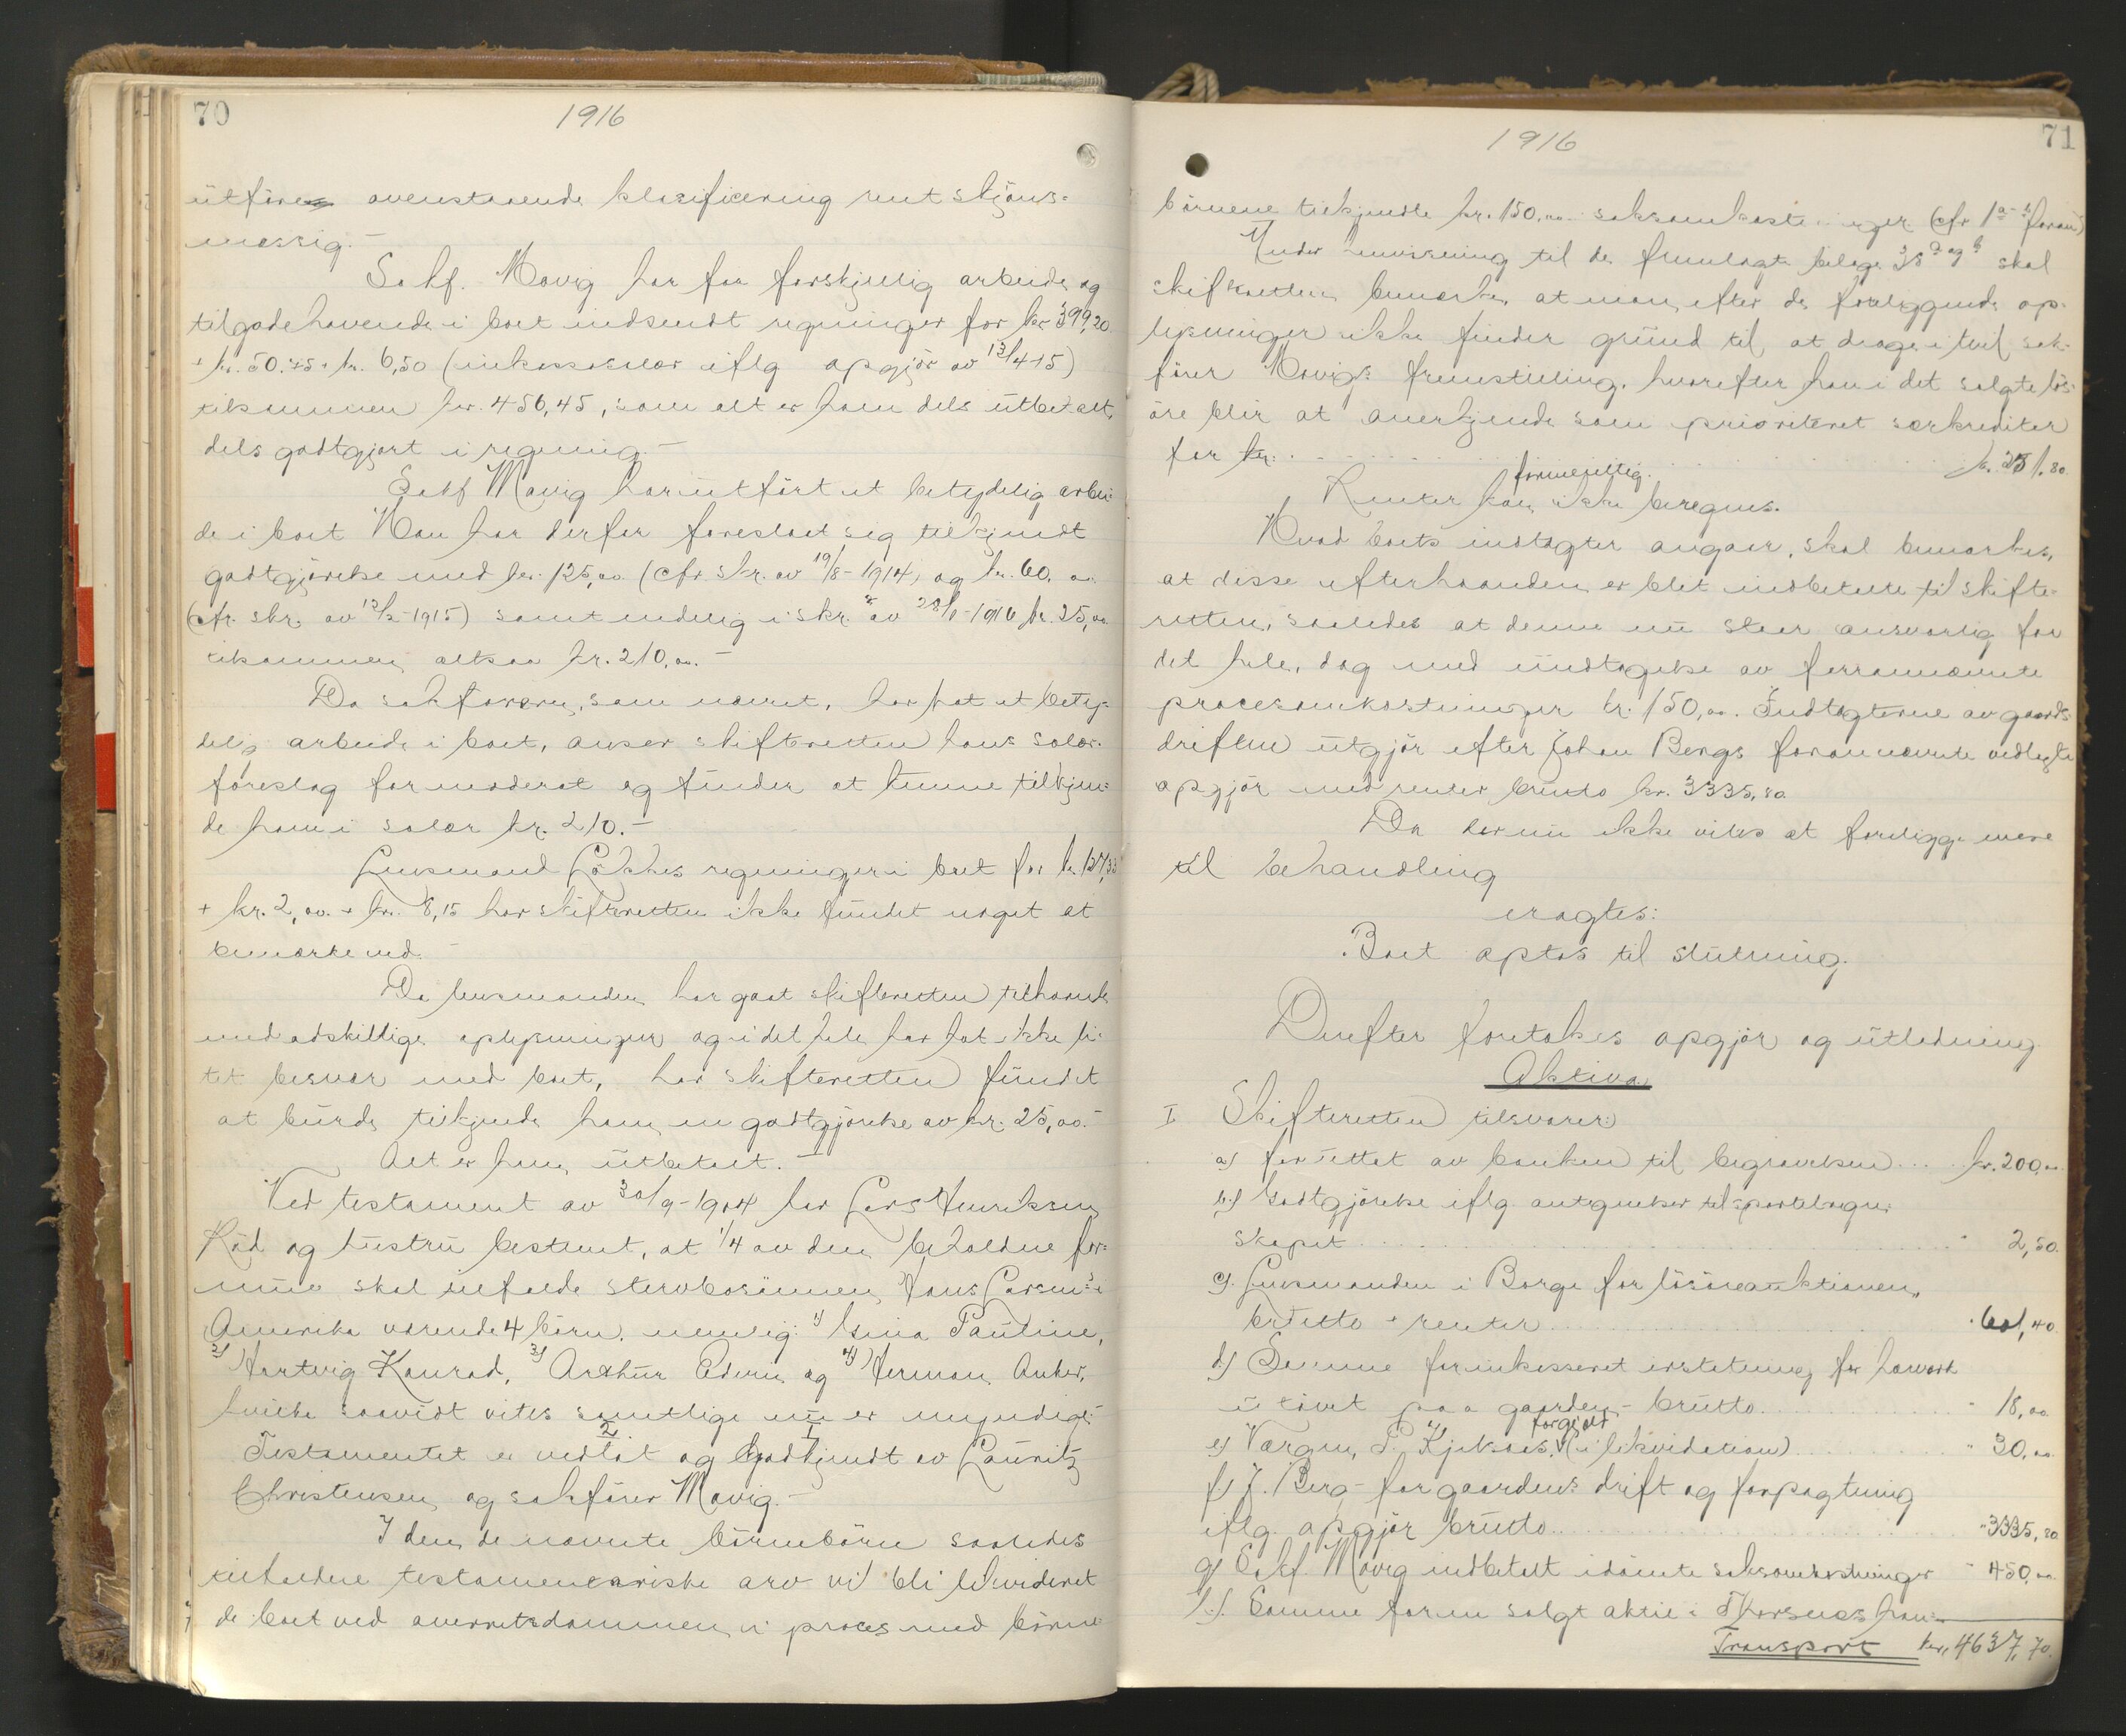 70
1916
utføres ovenstaaende klasificering rent skjøns-
messig.-
Sakf. Mavig har for forskjellig arbeide og
tilgodehavende i boet indsendt regninger for kr 399,20
+ kr. 50.75 + kr. 6,50 (inkassosalær iflg opgjør av 13/4-15)
tilsammen kr. 456,45, som alt er ham dels utbetalt,
dels godtgjort i regning.-
Sakf Mavig har utført et betydelig arbei-
de i boet Han har derfor foreslaat sig tilkjendt
godtgjørelse med kr. 125,00 (cfr skr. av 19/8-1914, og kr. 60,00
(cfr. skr. av 12/2-1915) samt endelig i skr. av 28/1-1916 kr. 25,00
tilsammen altsaa kr. 210,00.-
Da sakføreren, som nævnt, har hat et bety-
delig arbeide i boet, anser skifteretten hans salær-
forslag for moderat og finder at kunne tilkjen-
de ham i salær kr. 210.-
Lensmand Løkkes regninger i boet for kr. 127,33
+ kr. 2,00. + kr. 8,15 har skifteretten ikke fundet noget at
bemerke ved.-
Da lensmanden har gaat skifteretten tilhaande
med adskillige oplysninger og i det hele har hat ikke li-
tet besvær med boet, har skifteretten fundet
at burde tilkjende ham en godtgjørelse av kr. 25,00.-
Alt er ham utbetalt.-
Ved testament av 30/9-1904 har Lars Henriksen
Rød og hustru bestemt, at 1/4 av den beholdne for-
mue skal tilfalde stervbosønnen Hans Larsens i
Amerika værende 4 børn, nemlig: 1) Gina Pauline,
2) Hartvig Konrad, 3) Arthur Edvin og 4) Herman Anker,
hvilke saavidt vites samtlige nu er umyndige.-
Testamentet er vedtat og godkjendt av Lauritz
Christensen og sakfører Mavig.-
I den de nævnte børnebørn saaledes
tilfaldne testamentariske arv vil bli likvideret
de boet ved overretsdommen i proces med børne-
71
1916
børnene tilkjendte kr. 150,00 saksomkostninger (cfr 1 foran)
Under henvisning til de fremlagte bilage 38 a og b skal
skifteretten bemerke, at man efter de foreliggende op-
lysninger ikke finder grund til at drage i tvil sak-
fører Mavigs fremstilling, hvorefter han i det solgte løs-
øre blir at anerkjende som prioriteret særkreditor
for kr. kr. 251.80.
Renter kan ikke formelellig beregnes.
Hvad boets indtægter angaar, skal bemerkes,
at disse efterhaanden er blet indbetalte til skifte-
retten, saaledes at denne nu staar ansvarlig for
det hele, dog med undtagelse av forannævnte
procesomkostninger kr. 150,00. Indtægterne av gaards-
driften utgjør efter Johan Bergs forannævnte vedlagte
opgjør med renter brutto kr. 3335,80.
Da der nu ikke vites at foreligge mere
til behandling
eragtes:
Boet optas til slutning.
Derefter foretokes opgjør og utlodning
Aktiva
I Skifteretten tilsvarer:
a) for uttat av banken til begravelsen.... kr. 200,00
b) Godtgjørelse iflg. antegnelser til sportelregn-
skapet " 2,50.
c) Lensmanden i Borge for løsøreauktionen,
brutto + renter " 601,40
d) Samme for inkasseret erstatning for havort
utøvet paa gaarden - brutto " 18,00
e) Værgen P. Kjeksaas, forgjæld (i likvidation) " 30,00
f) J. Berg - for gaardens drift og forpagtning
iflg. opgjør brutto " 3335,80
g) Sakf. Mavig indbetalt idømte saksomkostninger " 450,00
h) Samme for en solgt aktie i Thorsnes han-
Transport kr. 4637,70.